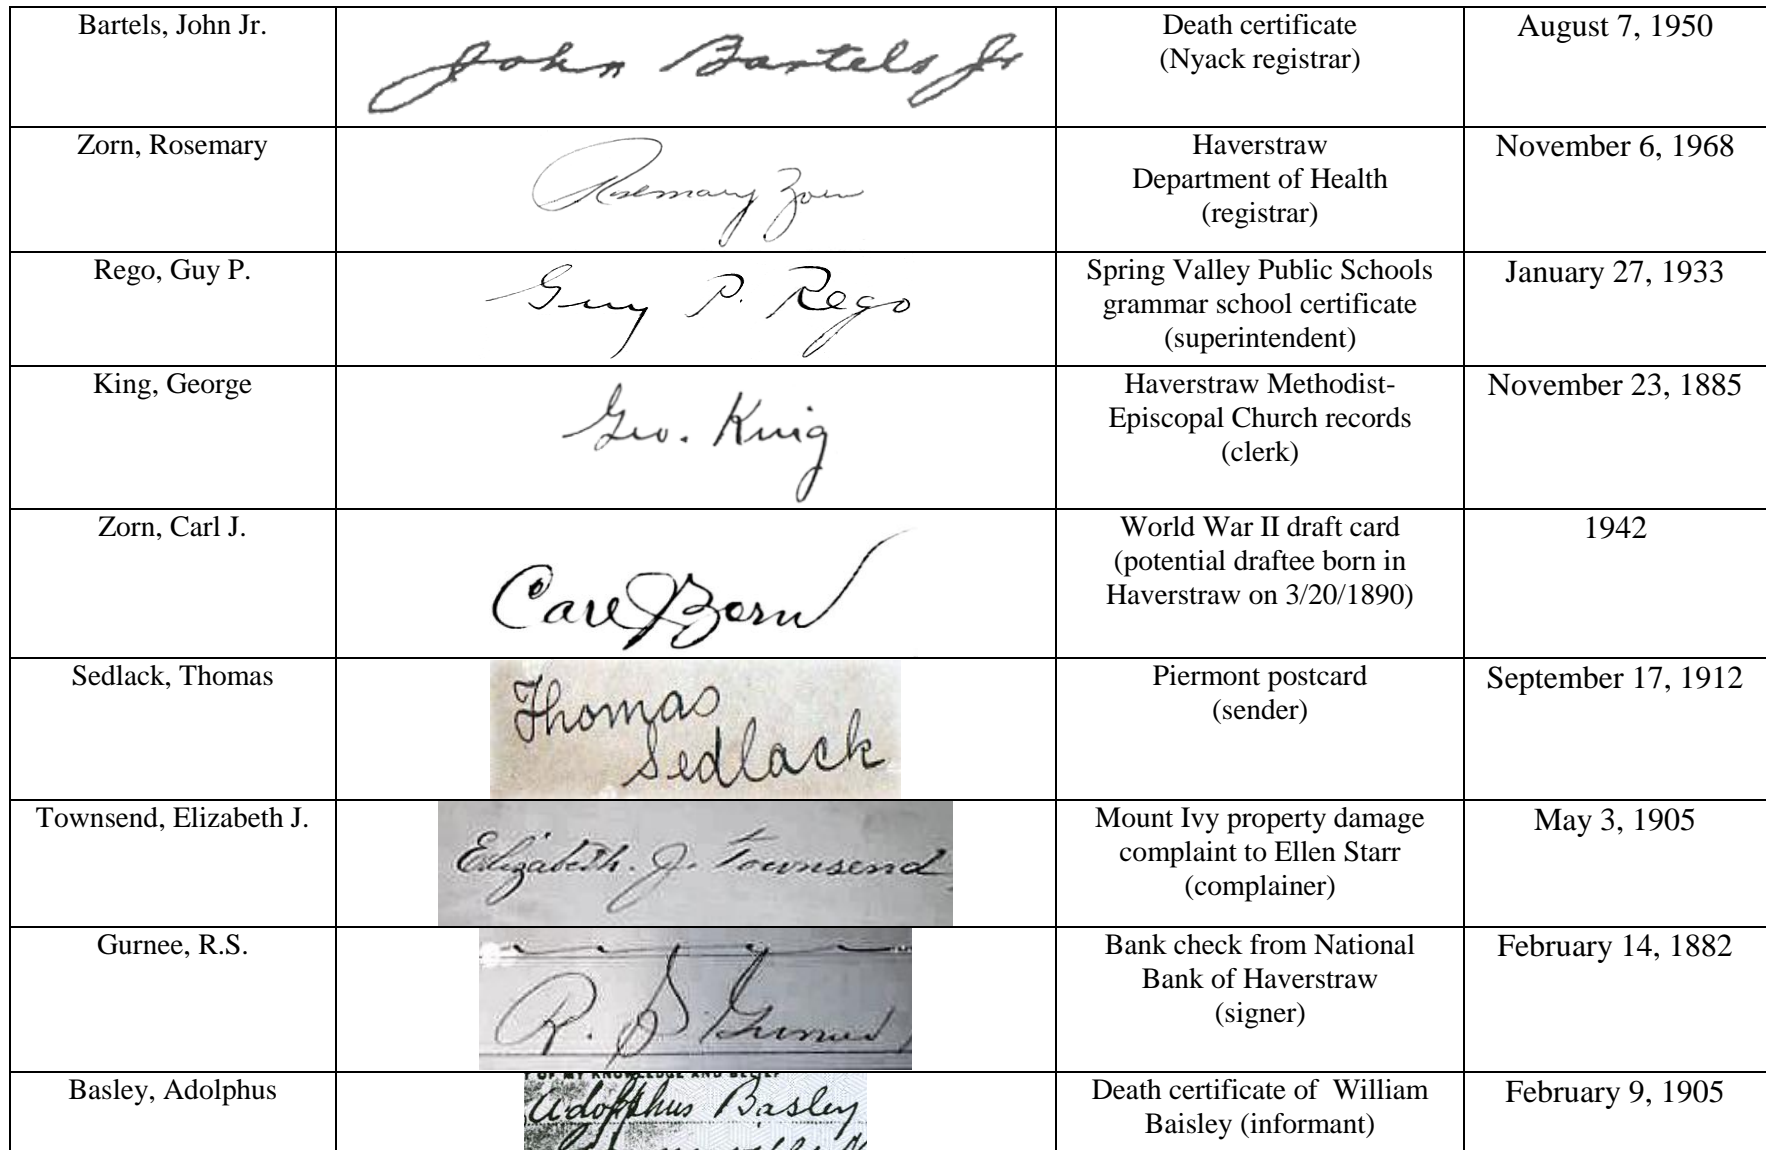 Bartels, John Jr.
John Bartels Jr
Death certificate
(Nyack registrar)
August 7, 1950
Zorn, Rosemary
Rosemary Zorn
Haverstraw
Department of Health
(registrar)
November 6, 1968
Rego, Guy P.
Guy P. Rego
Spring Valley Public Schools
grammar school certificate
(superintendent)
January 27, 1933
King, George
Geo. King
Haverstraw Methodist-
Episcopal Church records
(clerk)
November 23, 1885
Zorn, Carl J.
Carl J Zorn
World War II draft card
(potential draftee born in
Haverstraw on 3/20/1890)
1942
Sedlack, Thomas
Thomas
Sedlack
Piermont postcard
(sender)
September 17, 1912
Townsend, Elizabeth J.
Elizabeth. J. Townsend
Mount Ivy property damage
complaint to Ellen Starr
(complainer)
May 3, 1905
Gurnee, R.S.
R. S. Gurnee
Bank check from National
Bank of Haverstraw
(signer)
February 14, 1882
Basley, Adolphus
OF MY KNOWLEDGE AND BELIEF
Adolphus Basley
Death certificate of William
Baisley (informant)
February 9, 1905